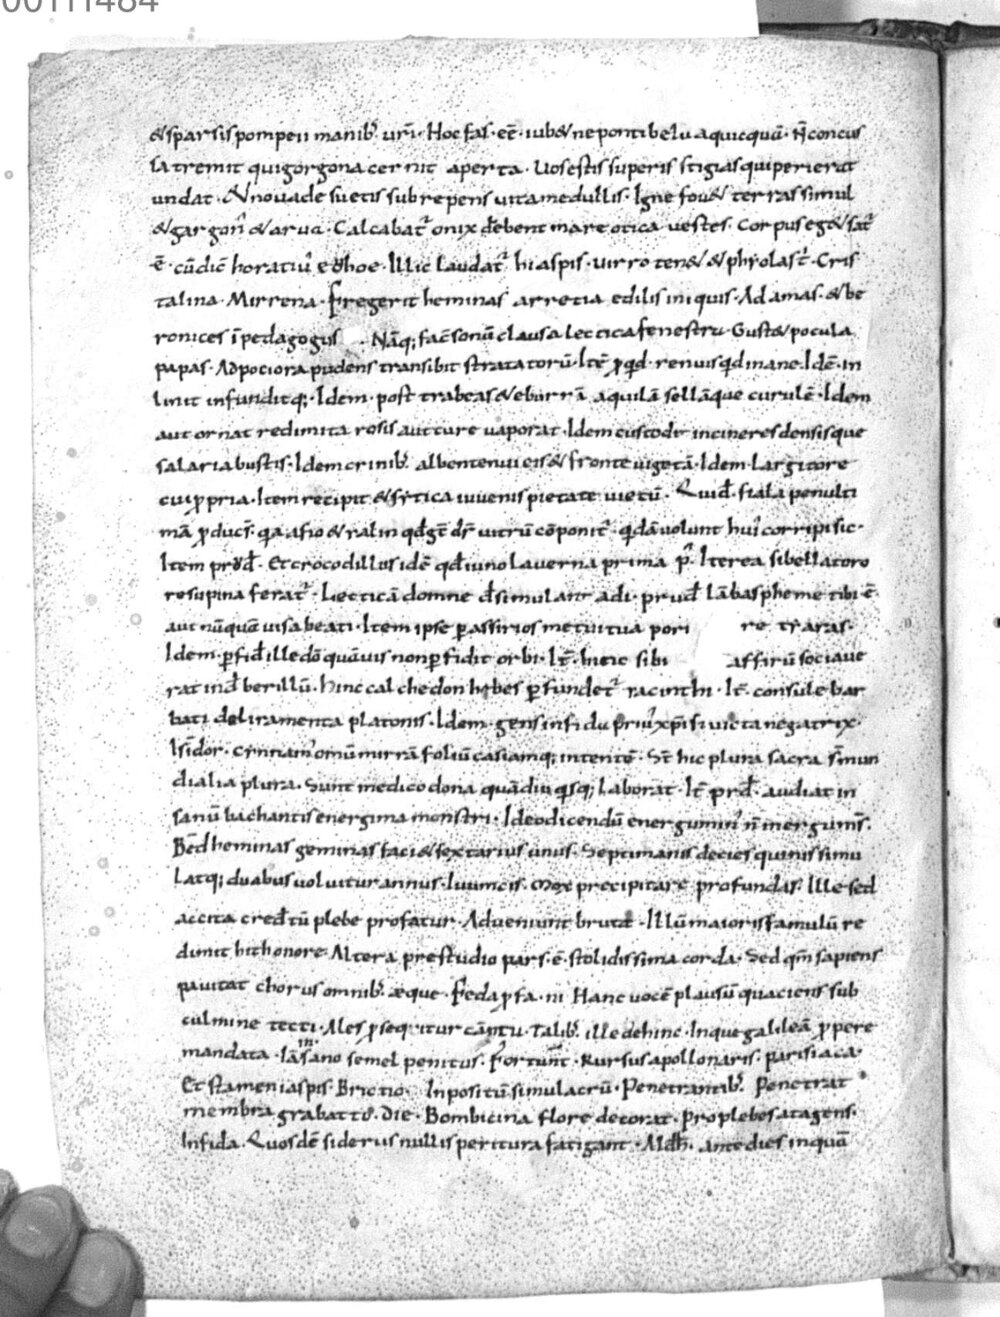 00111484
& sparsis pompeii manib; urī · Hoc fas · eē · iub& ne ponti belua quicquā · n̄ concus
sa tremit qui gorgona cernit aperta · Uos estis superis stigias qui perierat
undat · & noua desuetis subrepens uita medullis · Igne fou& terras simul
& gargon̄ & arua · Calcabat̄ onix · debent mareotica uestes · Corpus eg& sat̄
ē · cū dic̄ horatiu᷒ · Illic laudat̄ hiaspis · uirro ten& & phyolas t̄ · Cris
talina · Mirrena · Fregerit heminas arretia edilis iniquis · Adamas · & be
ronices ī pedagogus Nāq; fac̄ sonū clausa lectica fenestra · Gust& pocula
papas · Ad pociora pudens transibit stratatorū · Itē renuis qd inane · Idē · in
linit infunditq; · Idem · post trabeas & eburrā aquilā sellāque curulē · Idem
aut ornat redimita rosis aut ture uaporat · Idem custodit in cineres densisque
salaria bustis · Idem crinib; albentenuieis & fronte uigetā · Idem · Largitore
cui ꝓpria · Item recipit & sytica iuuenis pietate uietū · Quid · fiala penulti
mā ꝓduc̄ · qa afio & ralin qd gt̄ dr̄ uitrū cōponit̄ · qdā uolunt hui᷒ corripi sic ·
Item · Et crocodillus idē qd iuno lauerna prima · Iterea sibellatoro
resupina ferat̄ · Lecticā domne dsimulant adi · prud lā baspheme tibi ē ·
aut nūquā uisa beati · Item ipse ꝑ assirios metuit ua pori re
Idem · ꝑfid ille dō quāuis non ꝑfidit orbi · It̄ · huic sibi assirū sociaue
rat ind berillū · hinc calchedon hebes ꝑfundet̄ iacinthi · It̄ · consule bar
bati deliramenta platonis · Idem · gens infidu xp̄i si uicta negatrix ·
Isidor · cynnam᷒ omū mirrā foliū casiamq; intentē · St̄ hic plura sacra s̄ mun
dialia plura · Sunt medico dona quādiu qsq; laborat · It̄ prd · audiat in
sanū bachantis energima monstri · Ideo dicendū energumin᷒ n̄ inergum̄s ·
Bēd heminas geminas faci& sextarius unus · Septimanis decies quinis simu
latq; duabus uoluitur annus · Mox precipitare profundas · Ille sed
accita cred tū plebe profatur · Adueniunt brutæ · Illū maioris famulū re
dimit bithonore · Altera prestudio pars · ē · stolidissima corda · Sed qm̄ sapiens
pauitat chorus omnib; æque · Feda ꝓfa · ni Hanc uocē plausū quaciens sub
culmine tecti · Ales ꝓsequitur cantu · Talib; ille dehinc · Inque galileā ꝓpere
mandata · Iā īsano semel penitus · Fortunt̄ · Rursus apollonaris · parisiaca ·
Et stamen iaspis · Brictio Inpositū simulacrū · Penetrantib; Penetrat
membra grabatto die · Bombicina flore decorat · Pro plebes atagens ·
Infida · Quosdē siderius nullis peritura fatigant · Aldh · ante dies inquā